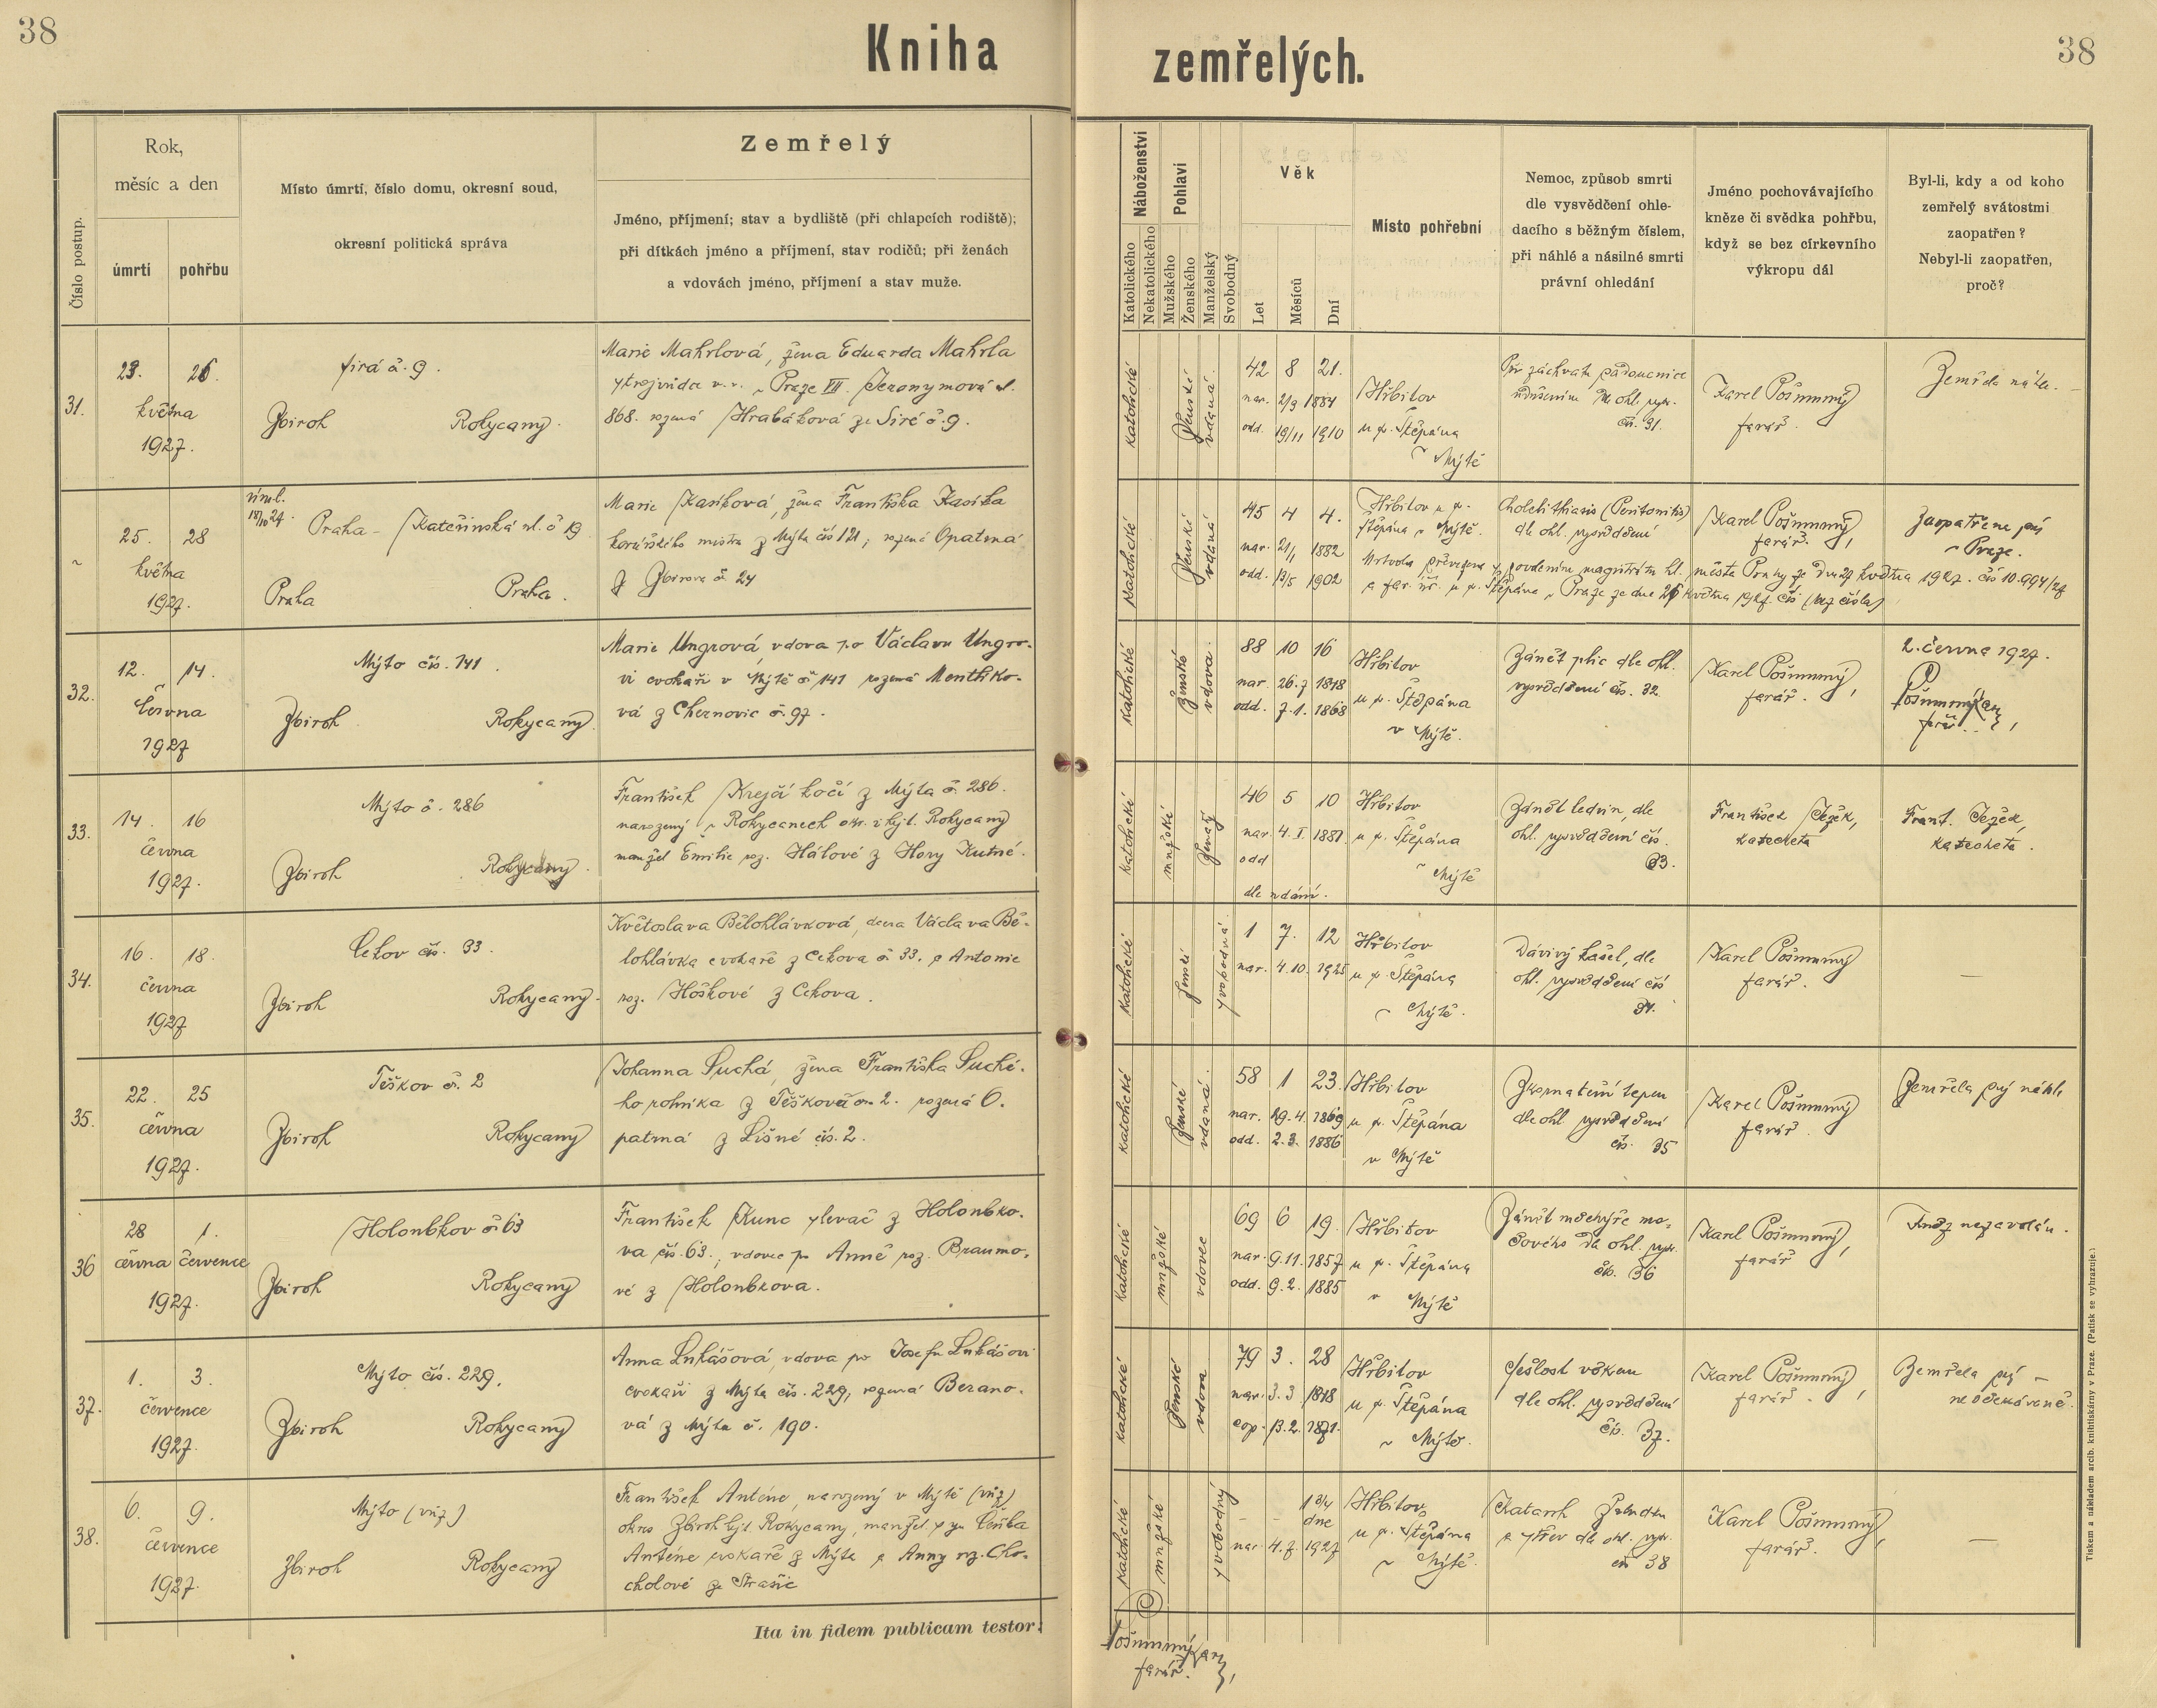 38
Kniha zemřelých.
38
Číslo postup.
Rok,
měsíc a den
úmrtí
pohřbu
Místo úmrtí, číslo domu, okresní soud,
okresní politická správa
Zemřelý
Jméno, příjmení; stav a bydliště (při chlapcích rodiště);
při dítkách jméno a příjmení, stav rodičů; při ženách
a vdovách jméno, příjmení a stav muže.
Náboženství
Katolického
Nekatolického
Pohlaví
Mužského
Ženského
Manželský
Svobodný
Věk
Let
Měsíců
Dní
Místo pohřební
Nemoc, způsob smrti
dle vysvědčení ohle-
dacího s běžným číslem,
při náhlé a násilné smrti
právní ohledání
Jméno pochovávajícího
kněze či svědka pohřbu,
když se bez církevního
výkropu dál
Byl-li, kdy a od koho
zemřelý svátostmi
zaopatřen?
Nebyl-li zaopatřen,
proč?
31.
23. 26.
května
1927.
Sirá č. 9.
Zbiroh Rokycany.
Marie Mahrlová, žena Eduarda Mahrla
v. v. v Praze VII. Jeronymová ul.
868. rozená Hrabáková ze Siré č. 9.
katolické
ženské
vdaná.
42 8 21.
nar. 2/9 1884
odd. 19/11 1910
Hřbitov
u sv. Štěpána
v Mýtě
Při záchvatu padoucnice
udušením dle ohl. vysv.
čís. 31.
Karel Pošmurný
farář.
Zemřela náhle.
25. 28
května
1927.
18/10 27.
Praha - Kateřinská ul. č 19
Praha Praha.
Marie Kasíková, žena Františka Kasíka
mistra z Mýta čís 121, rozená Opatrná
z Zbirova č. 24
katolické
ženské
vdaná
45 4 4.
nar. 21/1 1882
odd. 13/5 1902
Hřbitov u sv.
Štěpána v Mýtě.
Cholelithiasis (Peritonitis)
dle ohl. vysvědčení
Karel Pošmurný,
farář.
Zaopatřena prý
v Praze.
Mrtvola převezena s povolením magistrátu hl. města Prahy ze dne 27 května 1927. čís 10.994/27
a far. úř. u sv. Štěpána v Praze ze dne 26 května 1927. čís (bez čísla)
32.
12. 14.
června
1927
Mýto čís. 141.
Zbiroh Rokycany
Marie Ungrová, vdova po Václavu Ungro-
vi cvokaři v Mýtě č. 141 rozená Menthiko-
vá z Chernovic č. 97.
katolické
ženské
vdova.
88 10 16
nar. 26.7 1838
odd. 7.1. 1868
Hřbitov
u sv. Štěpána
v Mýtě.
Zánět plic dle ohl.
vysvědčení čís. 32.
Karel Pošmurný,
farář.
2. června 1927.
Pošmurný Kar.
farář.
33.
14. 16
června
1927.
Mýto č. 286
Zbiroh Rokycany
František Krejčí kočí z Mýta č. 286.
narozený v Rokycanech okr. i hejt. Rokycany
manžel Emilie roz. Hálové z Hory Kutné.
katolické
mužské
ženatý
46 5 10
nar. 4. I. 1881
odd
dle udání.
Hřbitov
u sv. Štěpána
v Mýtě
Zánět ledvin, dle
ohl. vysvědčení čís.
33.
František Ježek,
katecheta
Frant. Ježek,
katecheta.
34.
16. 18.
června
1927
Cekov čís. 33.
Zbiroh Rokycany.
Květoslava Bělohlávková, dcera Václava Bě-
lohlávka cvokaře z Cekova č. 33. a Antonie
roz. Hoškové z Cekova.
katolické
ženské
svobodná.
1 7. 12
nar. 4.10. 1925
Hřbitov
u sv. Štěpána
v Mýtě.
Dávivý kašel, dle
ohl. vysvědčení čís
34.
Karel Pošmurný
farář.
—
35.
22. 25
června
1927.
Těškov č. 2
Zbiroh Rokycany
Johanna Suchá, žena Františka Suché-
ho rolníka z Těškova č. 2. rozená O.
patrná z Lišné čís. 2.
katolické
ženské
vdaná.
58 1 23.
nar. 29.4. 1869
odd. 2.3. 1886
Hřbitov
u sv. Štěpána
v Mýtě
Zkornatění tepen
dle ohl vysvědčení
čís. 35
Karel Pošmurný
farář.
Zemřela prý náhle
36
28 1.
června července
1927.
Holoubkov č. 63
Zbiroh Rokycany
František Kunc slevač z Holoubko-
va čís. 63., vdovec po Anně roz. Braumo-
vé z Holoubkova.
katolické
mužské
vdovec
69 6 19.
nar. 9.11. 1857
odd. 9.2. 1885
Hřbitov
u sv. Štěpána
v Mýtě
Zánět měchýře mo-
čového dle ohl. vysv.
čís. 36
Karel Pošmurný,
farář
Kněz nezavolán.
37.
1. 3.
července
1927.
Mýto čís. 229.
Zbiroh Rokycany
Anna Lukášová, vdova po Josefu Lukášovi
cvokaři z Mýta čís. 229, rozená Berano-
vá z Mýta č. 190.
katolické
ženské
vdova
79 3. 28
nar. 3.3 1848
cop. 13.2. 1871.
Hřbitov
u sv. Štěpána
v Mýtě.
Sešlost věkem
dle ohl. vysvědčení
čís. 37.
Karel Pošmurný,
farář.
Zemřela prý —
neočekávaně.
38.
6. 9.
července
1927.
Mýto (viz)
Zbiroh Rokycany
František Anténe, narozený v Mýtě (viz)
okres Zbiroh hejt. Rokycany, manžel. syn Čeňka
Anténe cvokaře z Mýta a Anny roz. Cho-
cholové ze Strašic
katolické
mužské
svobodný
- - 1 3/4
dne
nar. 4.7. 1927
Hřbitov
u sv. Štěpána
v Mýtě.
Katarrh žaludku
a střev dle ohl. vysv.
čís 38
Karel Pošmurný,
farář.
—
Ita in fidem publicam testor:
Pošmurný Kar.
farář.
Tiskem a nákladem arcib. knihtiskárny v Praze. (Patisk se vyhrazuje.)